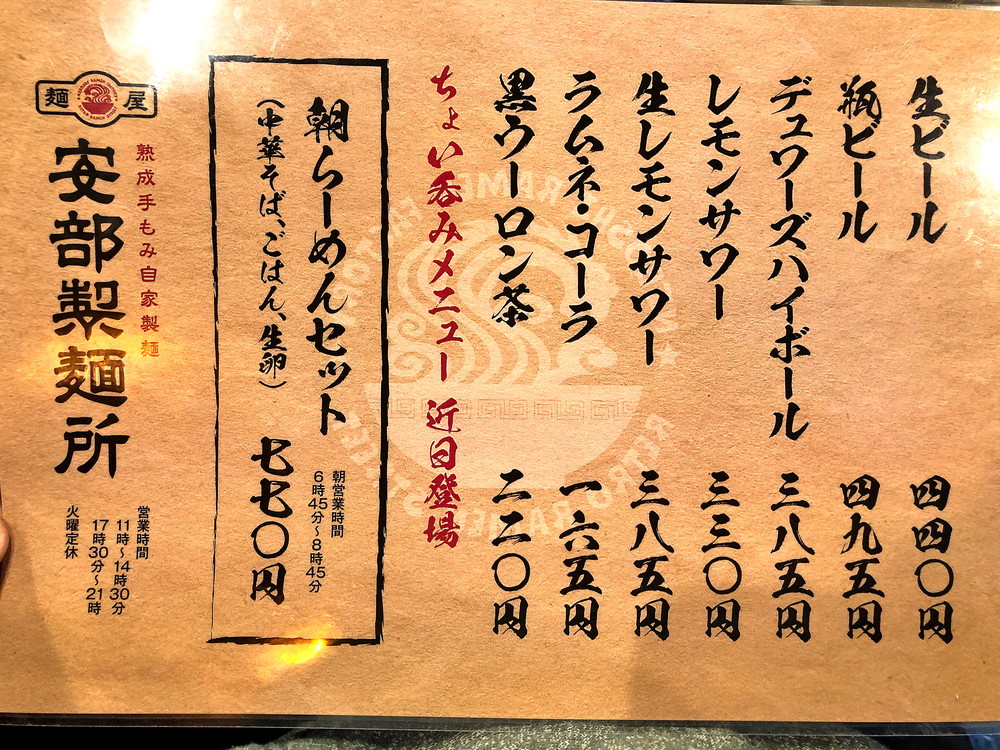 生ビール 四四〇円
瓶ビール 四九五円
デュワーズハイボール 三八五円
レモンサワー 三三〇円
生レモンサワー 三八五円
ラムネ・コーラ 一六五円
黒ウーロン茶 二二〇円
ちょい呑みメニュー 近日登場
朝らーめんセット
朝営業時間
6時45分～8時45分
(中華そば、ごはん、生卵) 七七〇円
麺屋
熟成手もみ自家製麺
安部製麺所
営業時間
11時～14時30分
17時30分～21時
火曜定休